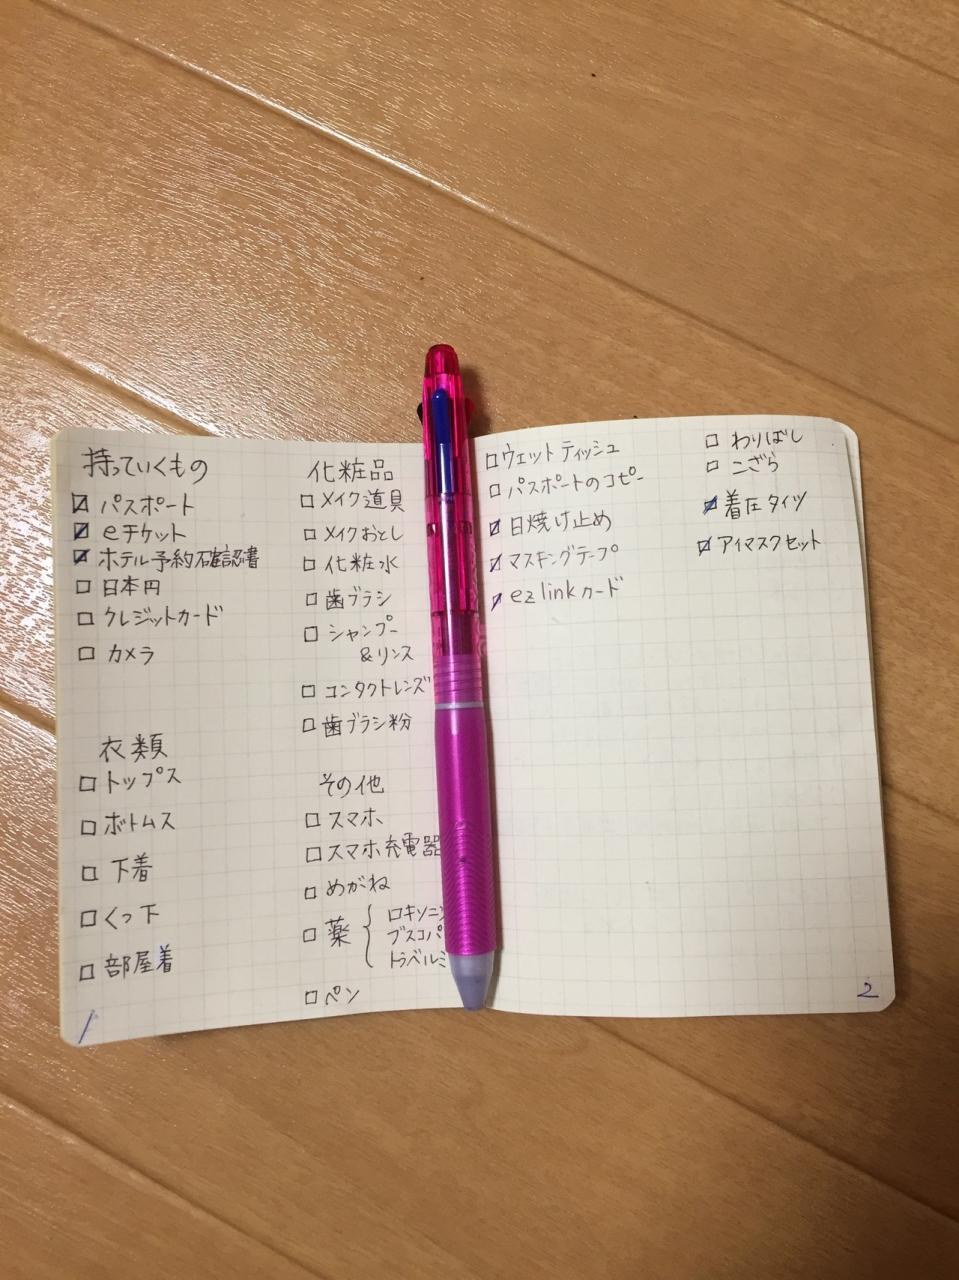 持っていくもの
☑ パスポート
☑ eチケット
☑ ホテル予約確認書
□ 日本円
□ クレジットカード
□ カメラ
衣類
□ トップス
□ ボトムス
□ 下着
□ くつ下
□ 部屋着
1
化粧品
□ メイク道具
□ メイクおとし
□ 化粧水
□ 歯ブラシ
□ シャンプー
&リンス
□ コンタクトレンズ
□ 歯ブラシ粉
その他
□ スマホ
□ スマホ充電器
□ めがね
□ 薬
ロキソニン
ブスコパ
トラベルミ
□ ペン
□ ウェットティッシュ
□ パスポートのコピー
☑ 日焼け止め
☑ マスキングテープ
☑ ez linkカード
□ わりばし
□ こざら
☑ 着圧タイツ
☑ アイマスクセット
2